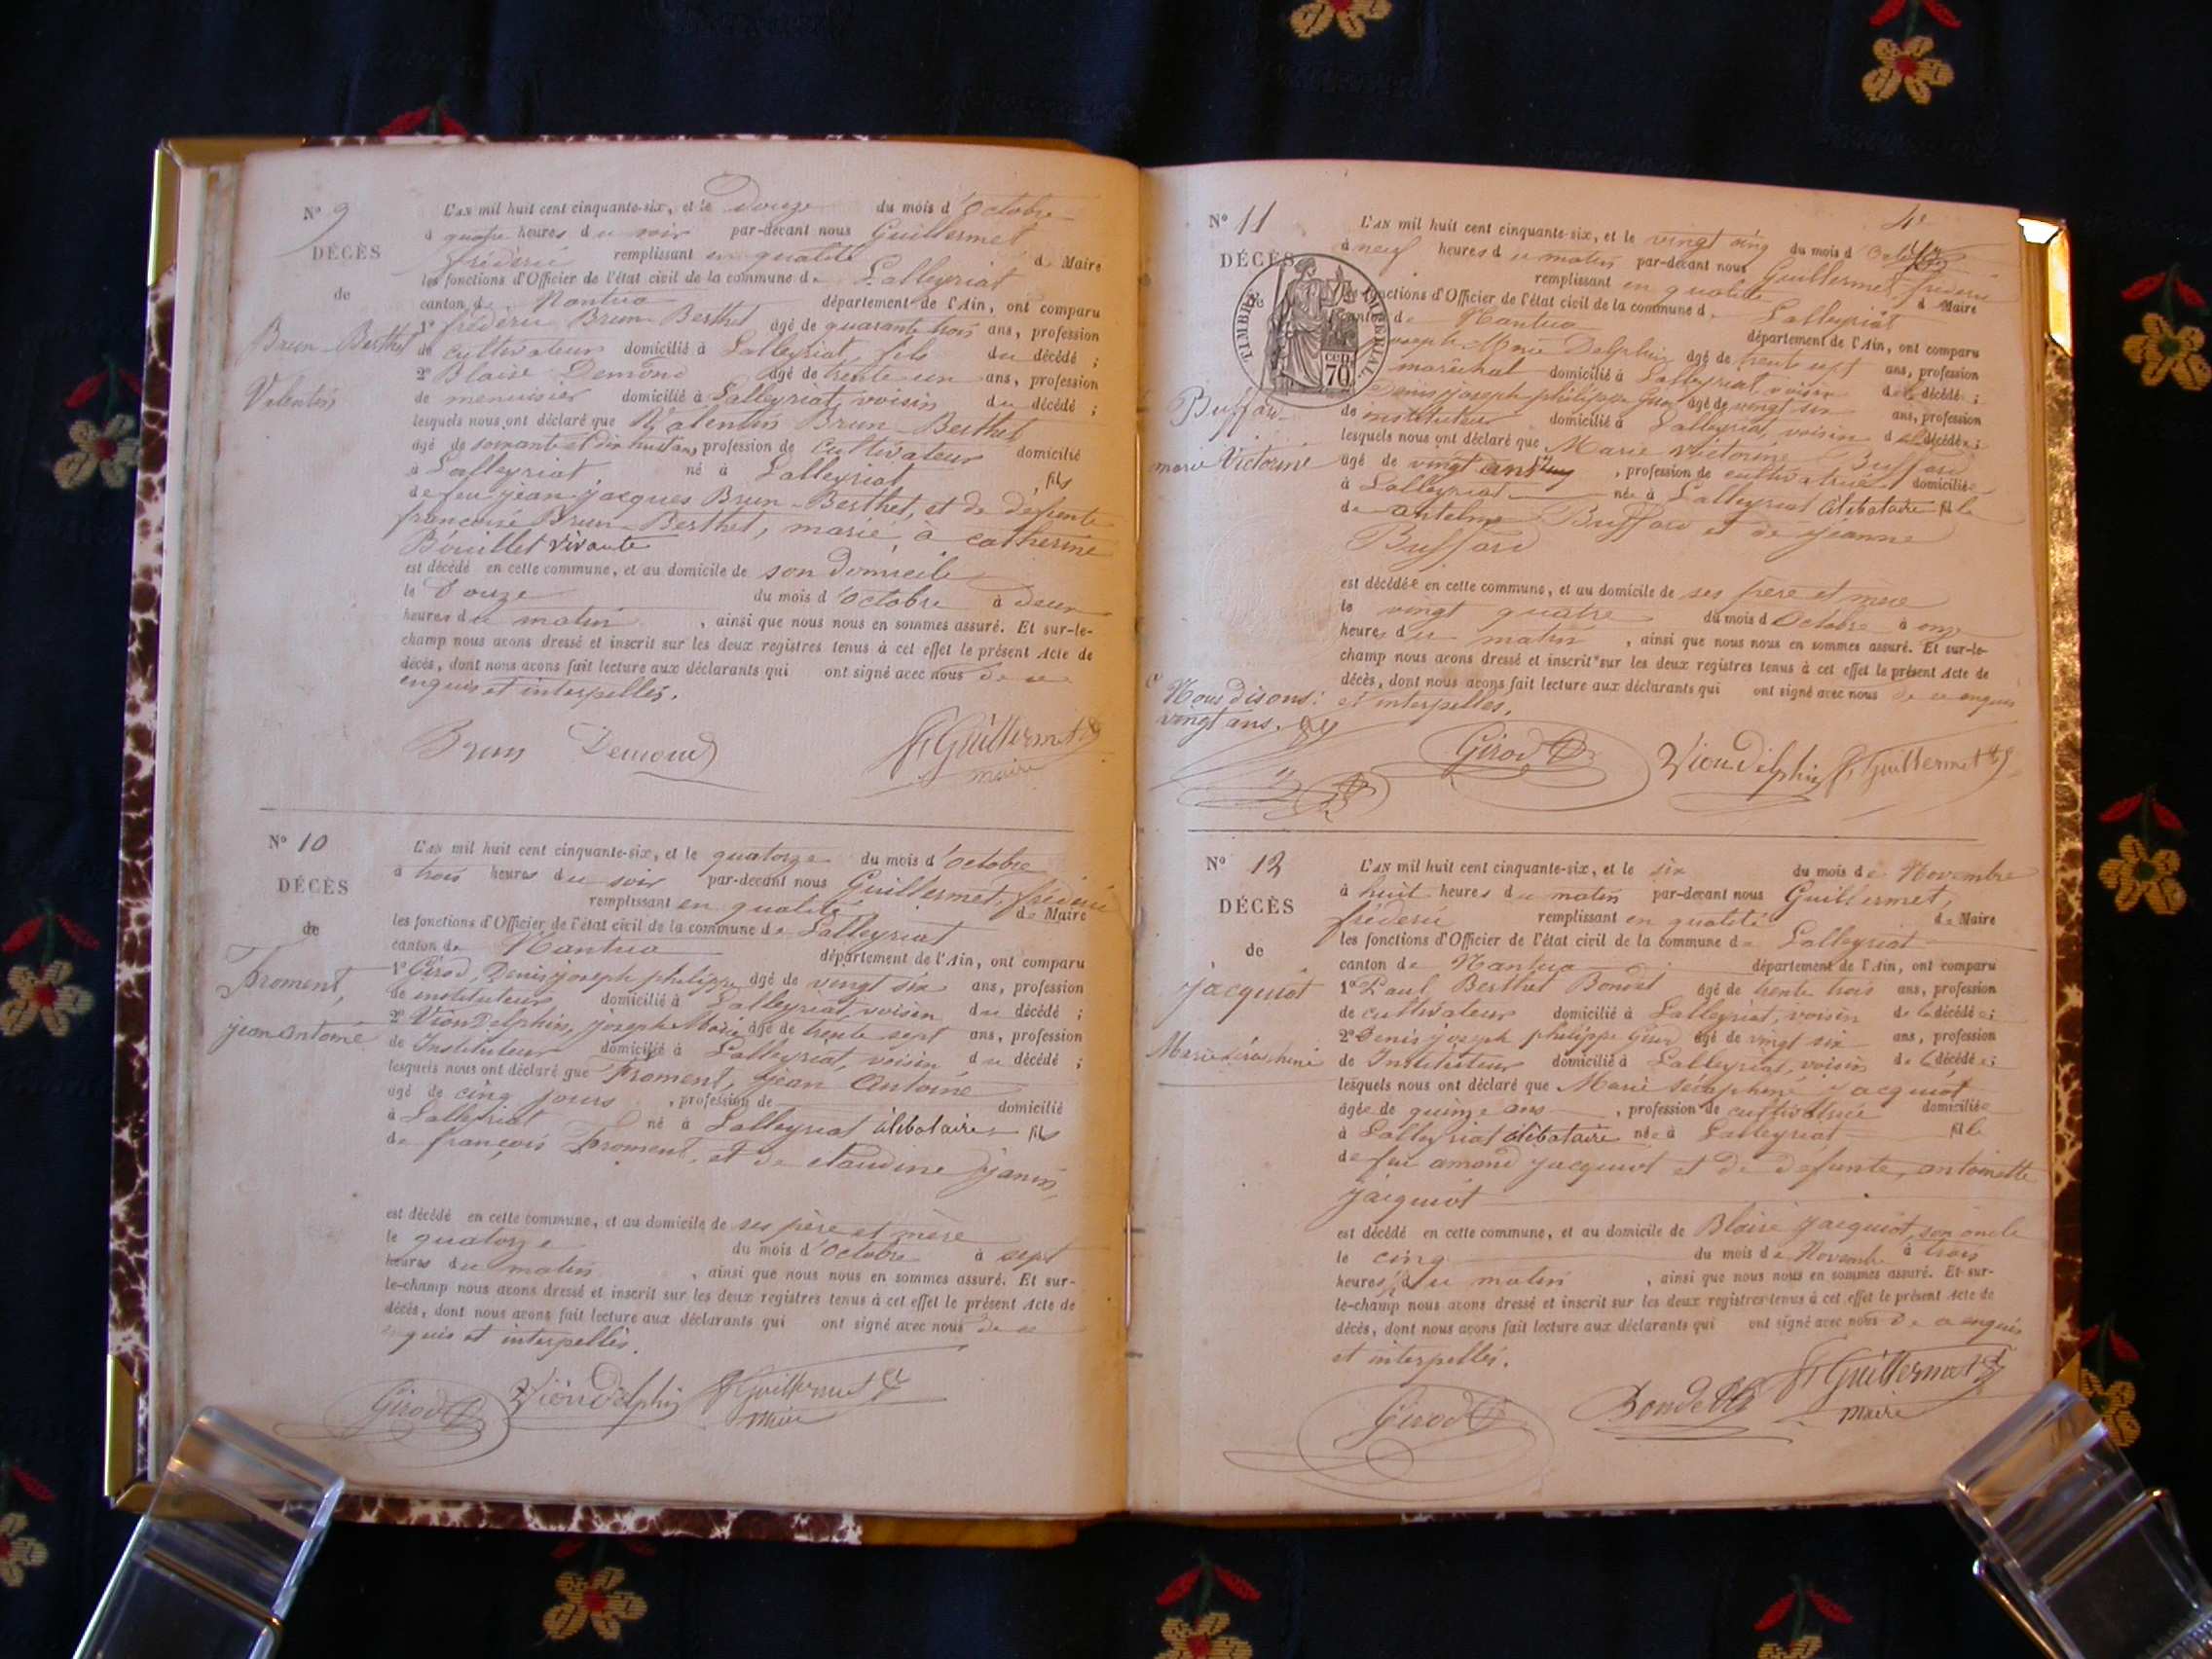 N° 9
DÉCÈS
de
Brun-Berthet
Valentin
L'AN mil huit cent cinquante-six, et le Douze du mois d'Octobre
à quatre heures du soir par-devant nous Guillermet
fréderic remplissant en qualité de Maire
les fonctions d'Officier de l'état civil de la commune de Lalleyriat
canton de Nantua département de l'Ain, ont comparu
1° fréderic Brun-Berthet âgé de quarante trois ans, profession
de cultivateur domicilié à Lalleyriat, fils du décédé ;
2° Blaise Demond âgé de trente un ans, profession
de menuisier domicilié à Lalleyriat, voisin du décédé ;
lesquels nous ont déclaré que Valentin Brun-Berthet
âgé de soixante et dix huit ans, profession de cultivateur domicilié
à Lalleyriat né à Lalleyriat, fils
de feu jean-jacques Brun-Berthet, et de défunte
francoise Brun-Berthet, marié à catherine
Bévillet vivante
est décédé en cette commune, et au domicile de son domicile
le Douze du mois d'Octobre à deux
heures du matin, ainsi que nous nous en sommes assuré. Et sur-le-
champ nous avons dressé et inscrit sur les deux registres tenus à cet effet le présent Acte de
décès, dont nous avons fait lecture aux déclarants qui ont signé avec nous de ce
enquis et interpellés.
Brun Demond f. Guillermet
maire
N° 10
DÉCÈS
de
Froment,
jean antoine
L'AN mil huit cent cinquante-six, et le quatorze du mois d'Octobre
à trois heures du soir par-devant nous Guillermet, fréderic
remplissant en qualité de Maire
les fonctions d'Officier de l'état civil de la commune de Lalleyriat
canton de Nantua département de l'Ain, ont comparu
1° Girod, Denis joseph philippe âgé de vingt six ans, profession
de instituteur domicilié à Lalleyriat, voisin du décédé ;
2° Vion Delphin, joseph Marie âgé de trente sept ans, profession
de Instituteur domicilié à Lalleyriat, voisin du décédé ;
lesquels nous ont déclaré que Froment, jean Antoine
âgé de cinq jours, profession de domicilié
à Lalleyriat né à Lalleyriat célibataire fils
de françois Froment, et de claudine Janin,
est décédé en cette commune, et au domicile de ses père et mère
le quatorze du mois d'Octobre à sept
heures du matin, ainsi que nous nous en sommes assuré. Et sur-
le-champ nous avons dressé et inscrit sur les deux registres tenus à cet effet le présent Acte de
décès, dont nous avons fait lecture aux déclarants qui ont signé avec nous de ce
enquis et interpellés.
Girod Vion Delphin f. Guillermet
Maire
4e
N° 11
DÉCÈS
de
TIMBRE IMPÉRIAL
CEN.
70
Buffard
marie Victorine
L'AN mil huit cent cinquante-six, et le vingt cinq du mois d'Octobre
à neuf heures du matin par-devant nous Guillermet, fréderic
remplissant en qualité de Maire
les fonctions d'Officier de l'état civil de la commune de Lalleyriat
canton de Nantua département de l'Ain, ont comparu
joseph Marie Delphin âgé de trente sept ans, profession
maréchal domicilié à Lalleyriat, voisin de la décédée ;
Denis joseph philippe Girod âgé de vingt six ans, profession
de instituteur domicilié à Lalleyriat, voisin de la décédée ;
lesquels nous ont déclaré que Marie Victorine Buffard
âgé de vingt ans, profession de cultivatrice domiciliée
à Lalleyriat née à Lalleyriat célibataire fille
de antelme Buffard et de jeanne
Buffard
est décédée en cette commune, et au domicile de ses père et mère
le vingt quatre du mois d'Octobre à onze
heures du matin, ainsi que nous nous en sommes assuré. Et sur-le-
champ nous avons dressé et inscrit sur les deux registres tenus à cet effet le présent Acte de
décès, dont nous avons fait lecture aux déclarants qui ont signé avec nous de ce enquis
et interpellés.
Nous disons:
vingt ans.
Girod Vion Delphin f. Guillermet
N° 12
DÉCÈS
de
jacquiot
Marie séraphine
L'AN mil huit cent cinquante-six, et le six du mois de Novembre
à huit heures du matin par-devant nous Guillermet,
fréderic remplissant en qualité de Maire
les fonctions d'Officier de l'état civil de la commune de Lalleyriat
canton de Nantua département de l'Ain, ont comparu
1° Paul Berthet Bondet âgé de trente trois ans, profession
de cultivateur domicilié à Lalleyriat, voisin de la décédée ;
2° Denis joseph philippe Girod âgé de vingt six ans, profession
de Instituteur domicilié à Lalleyriat, voisin de la décédée ;
lesquels nous ont déclaré que Marie séraphine jacquiot
âgée de quinze ans, profession de cultivatrice domiciliée
à Lalleyriat célibataire née à Lalleyriat fille
de feu amand jacquiot et de défunte, antoinette
jacquiot
est décédé en cette commune, et au domicile de Blaise jacquiot, son oncle
le cinq du mois de Novembre à trois
heures du matin, ainsi que nous nous en sommes assuré. Et sur-
le-champ nous avons dressé et inscrit sur les deux registres tenus à cet effet le présent Acte de
décès, dont nous avons fait lecture aux déclarants qui ont signé avec nous de ce enquis
et interpellés.
Girod Bondet f. Guillermet
Maire